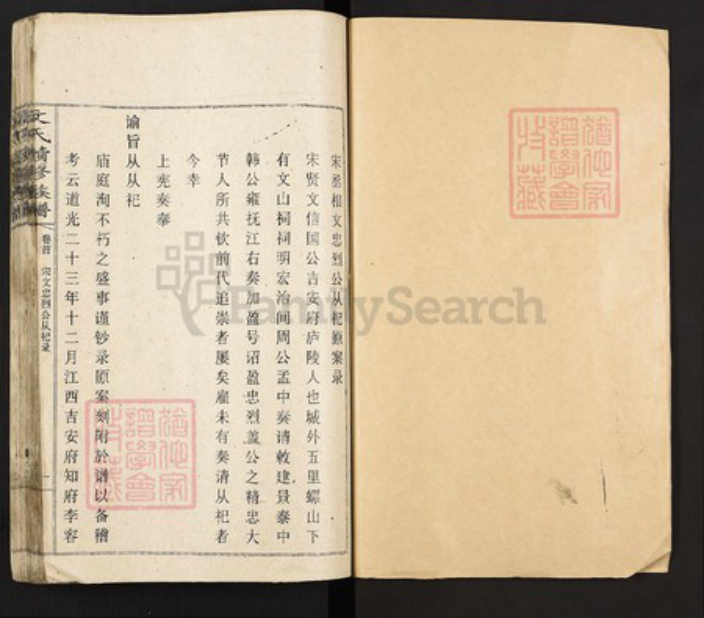 宋丞相文忠烈公从祀原案录
宋贤文信国公吉安府庐陵人也城外五里螺山下
有文山祠祠明宏治间周公孟中奏请敕建景泰中
韩公雍抚江右奏加盈号诏盈忠烈盖公之精忠大
节人所共钦前代追崇者屡矣雇未有奏请从祀者
今幸
上宪奏奉
谕旨从从祀
庙庭洵不朽之盛事谨钞录原案刻附於谱以备稽
考云道光二十三年十二月江西吉安府知府李容
文氏 修族谱
卷首
宋文忠烈公从祀录
一
FamilySearch
谱学会
收藏
谱学会
收藏